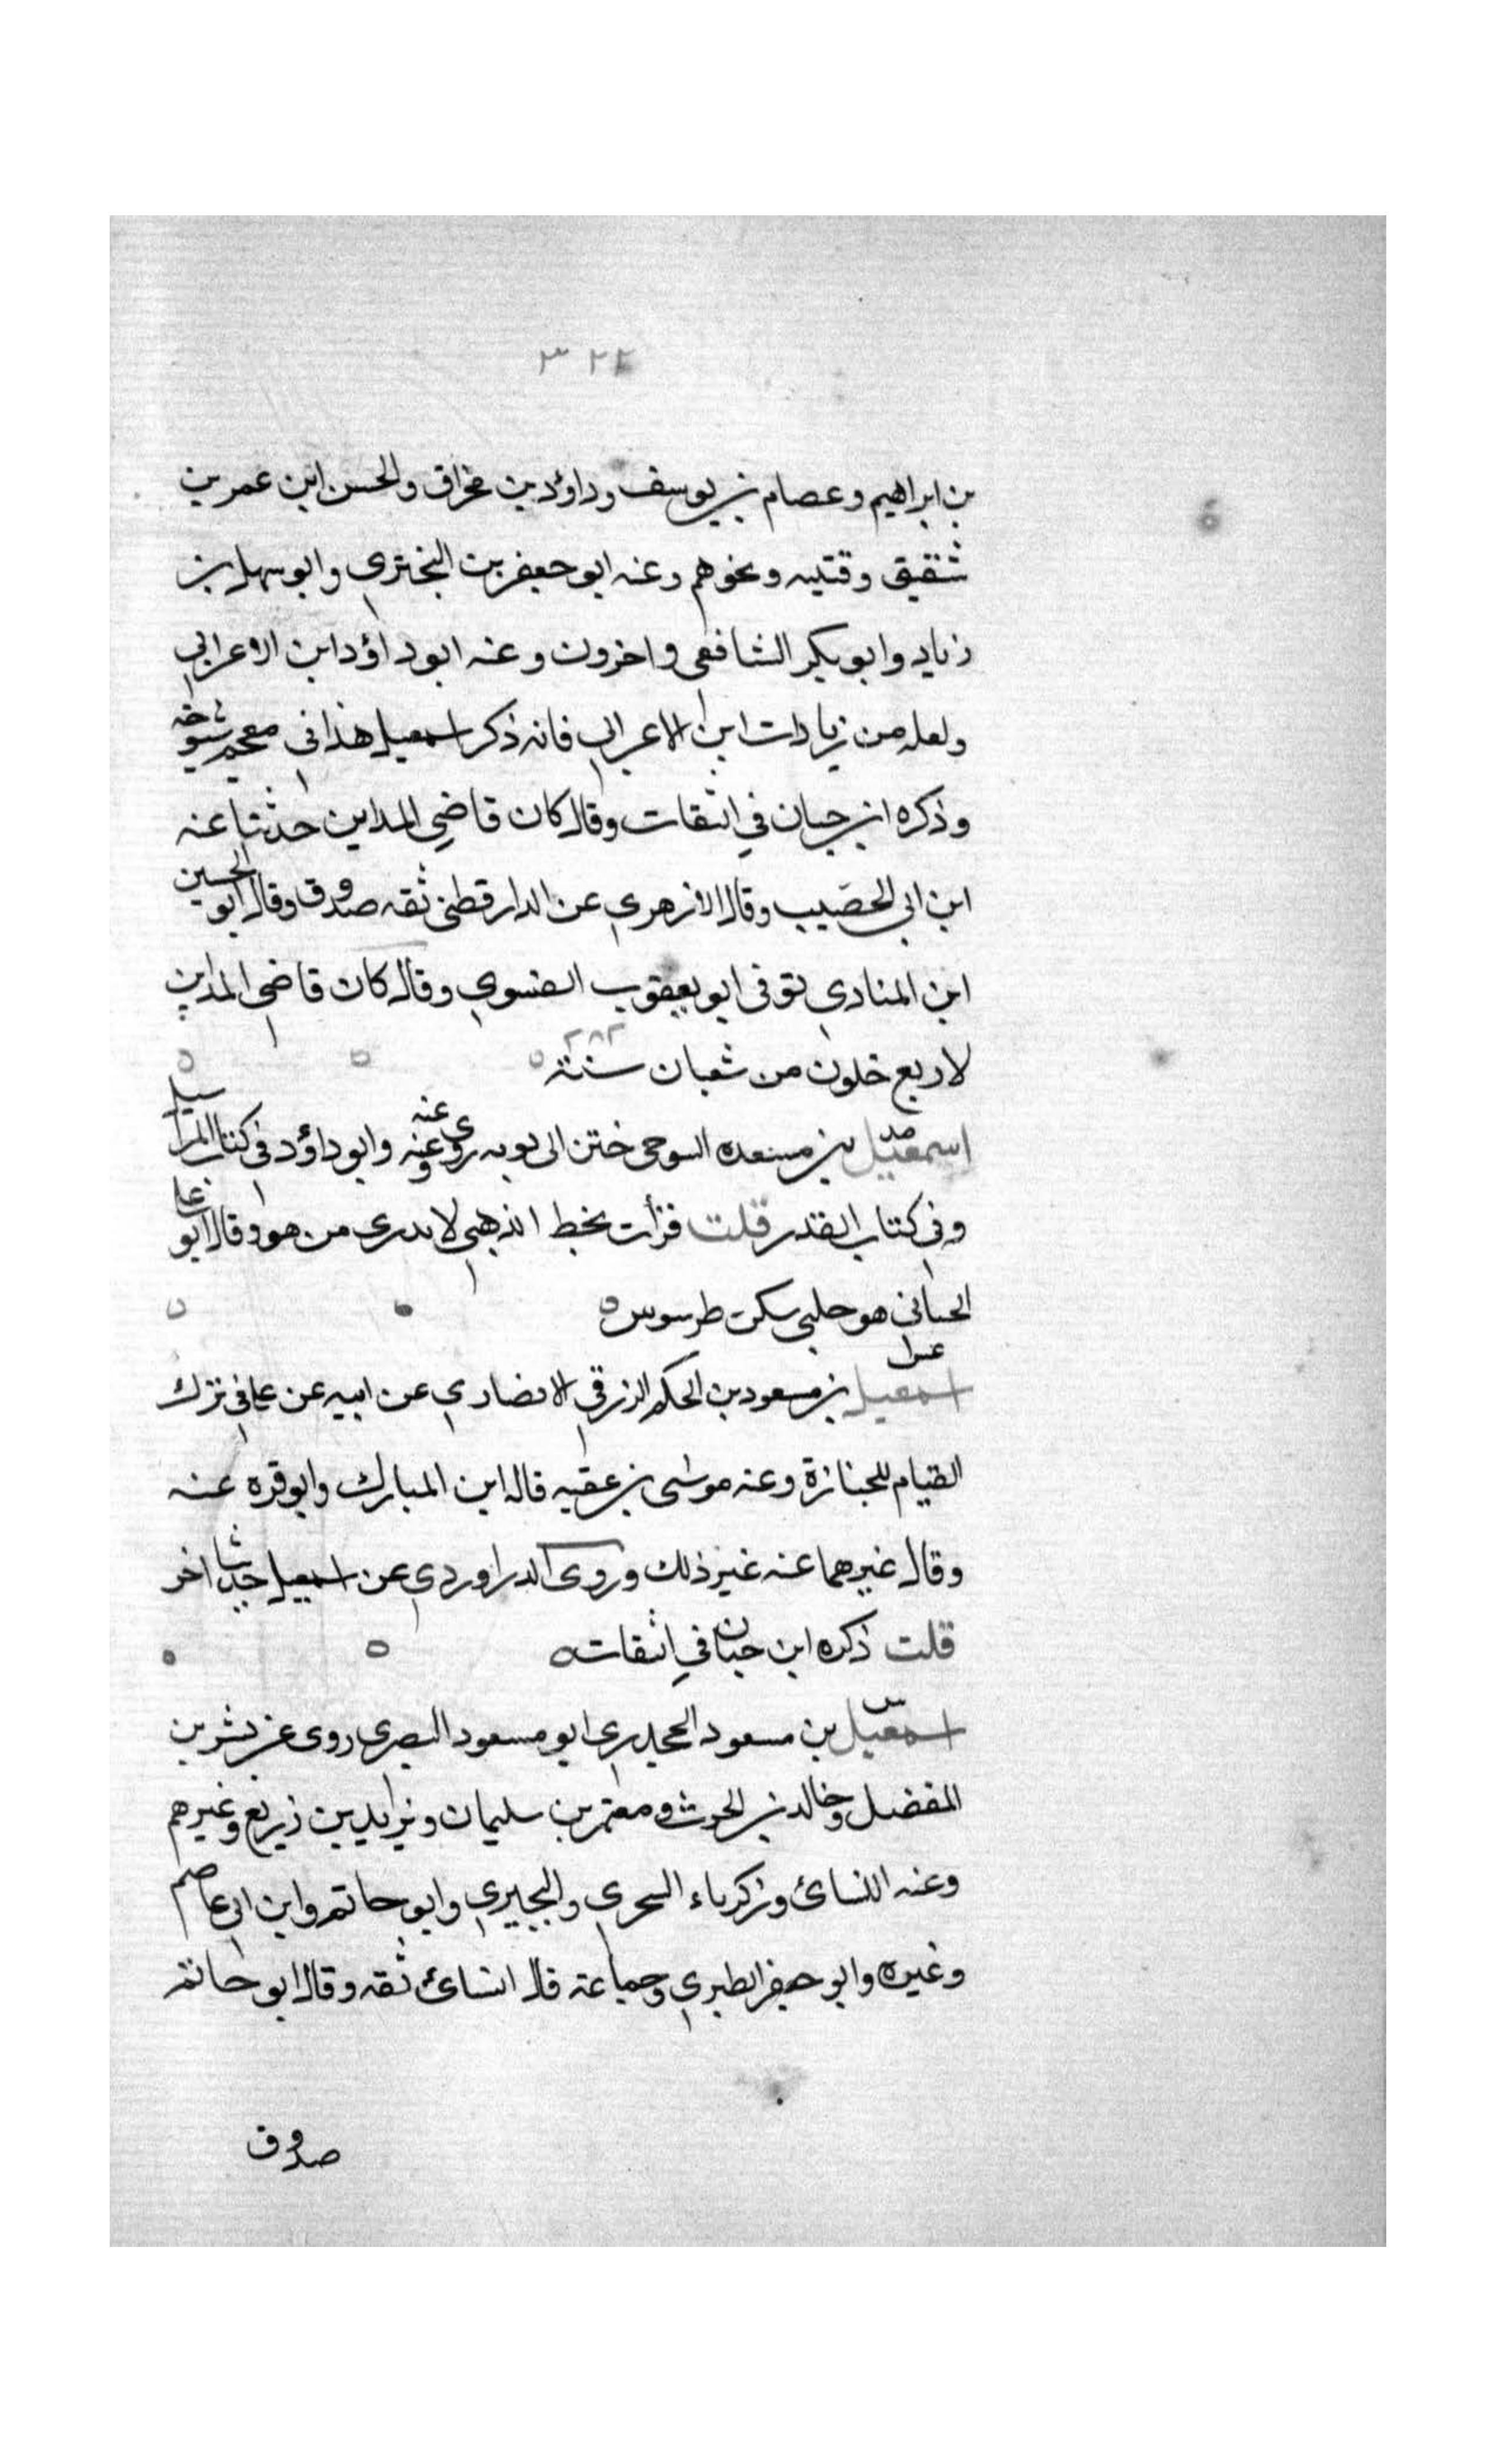 ٣٢٤
بن ابراهيم وعصام بن يوسف وداؤد بن مخراق والحسن ابن عمر بن
شقيق وقتيبه ونحوهم وعنه ابو جعفر بن البختري وابو سهل بن
زياد وابو بكر الشافعي واخرون وعنه ابو داؤد ابن الاعرابي
ولعله من زيادات ابن الاعرابي فانه ذكر اسمعيل هذا في معجم شيوخه
وذكره ابن حبان في الثقات وقال كان قاضي المداين حدثنا عنه
ابن ابي الخصيب وقال الازهري عن الدارقطني ثقه صدوق وقال ابو الحسين
ابن المنادي توفي ابو يعقوب الفسوي وقال كان قاضي المداين
لاربع خلون من شعبان سنة ٢٨٢
اسمعيل بن مسعده السوحي ختن ابي توبه روى عنه وعنه وابو داؤد في كتاب المراسيل
وفي كتاب القدر قلت قرأت بخط الذهبي لا يدرى من هو وقال ابو علي
الجياني هو حلبي سكن طرسوس
اسمعيل بن مسعود بن الحكم الزرقي الانصاري عن ابيه عن علي في ترك
القيام للجنازة وعنه موسى بن عقبه قاله ابن المبارك وابو قره عنه
وقال غيرهما عنه غير ذلك وروى الدراوردي عن اسمعيل حديثا اخر
قلت ذكره ابن حبان في الثقات
اسمعيل بن مسعود الجحدري ابو مسعود البصري روى عن بشر بن
المفضل وخالد بن الحرث ومعتمر بن سليمان ويزيد بن زريع وغيرهم
وعنه النسائ وزكرياء السجزي والبجيري وابو حاتم وابن ابي عاصم
وغيره وابو جعفر الطبري وجماعة قال النسائ ثقه وقال ابو حاتم
صدوق